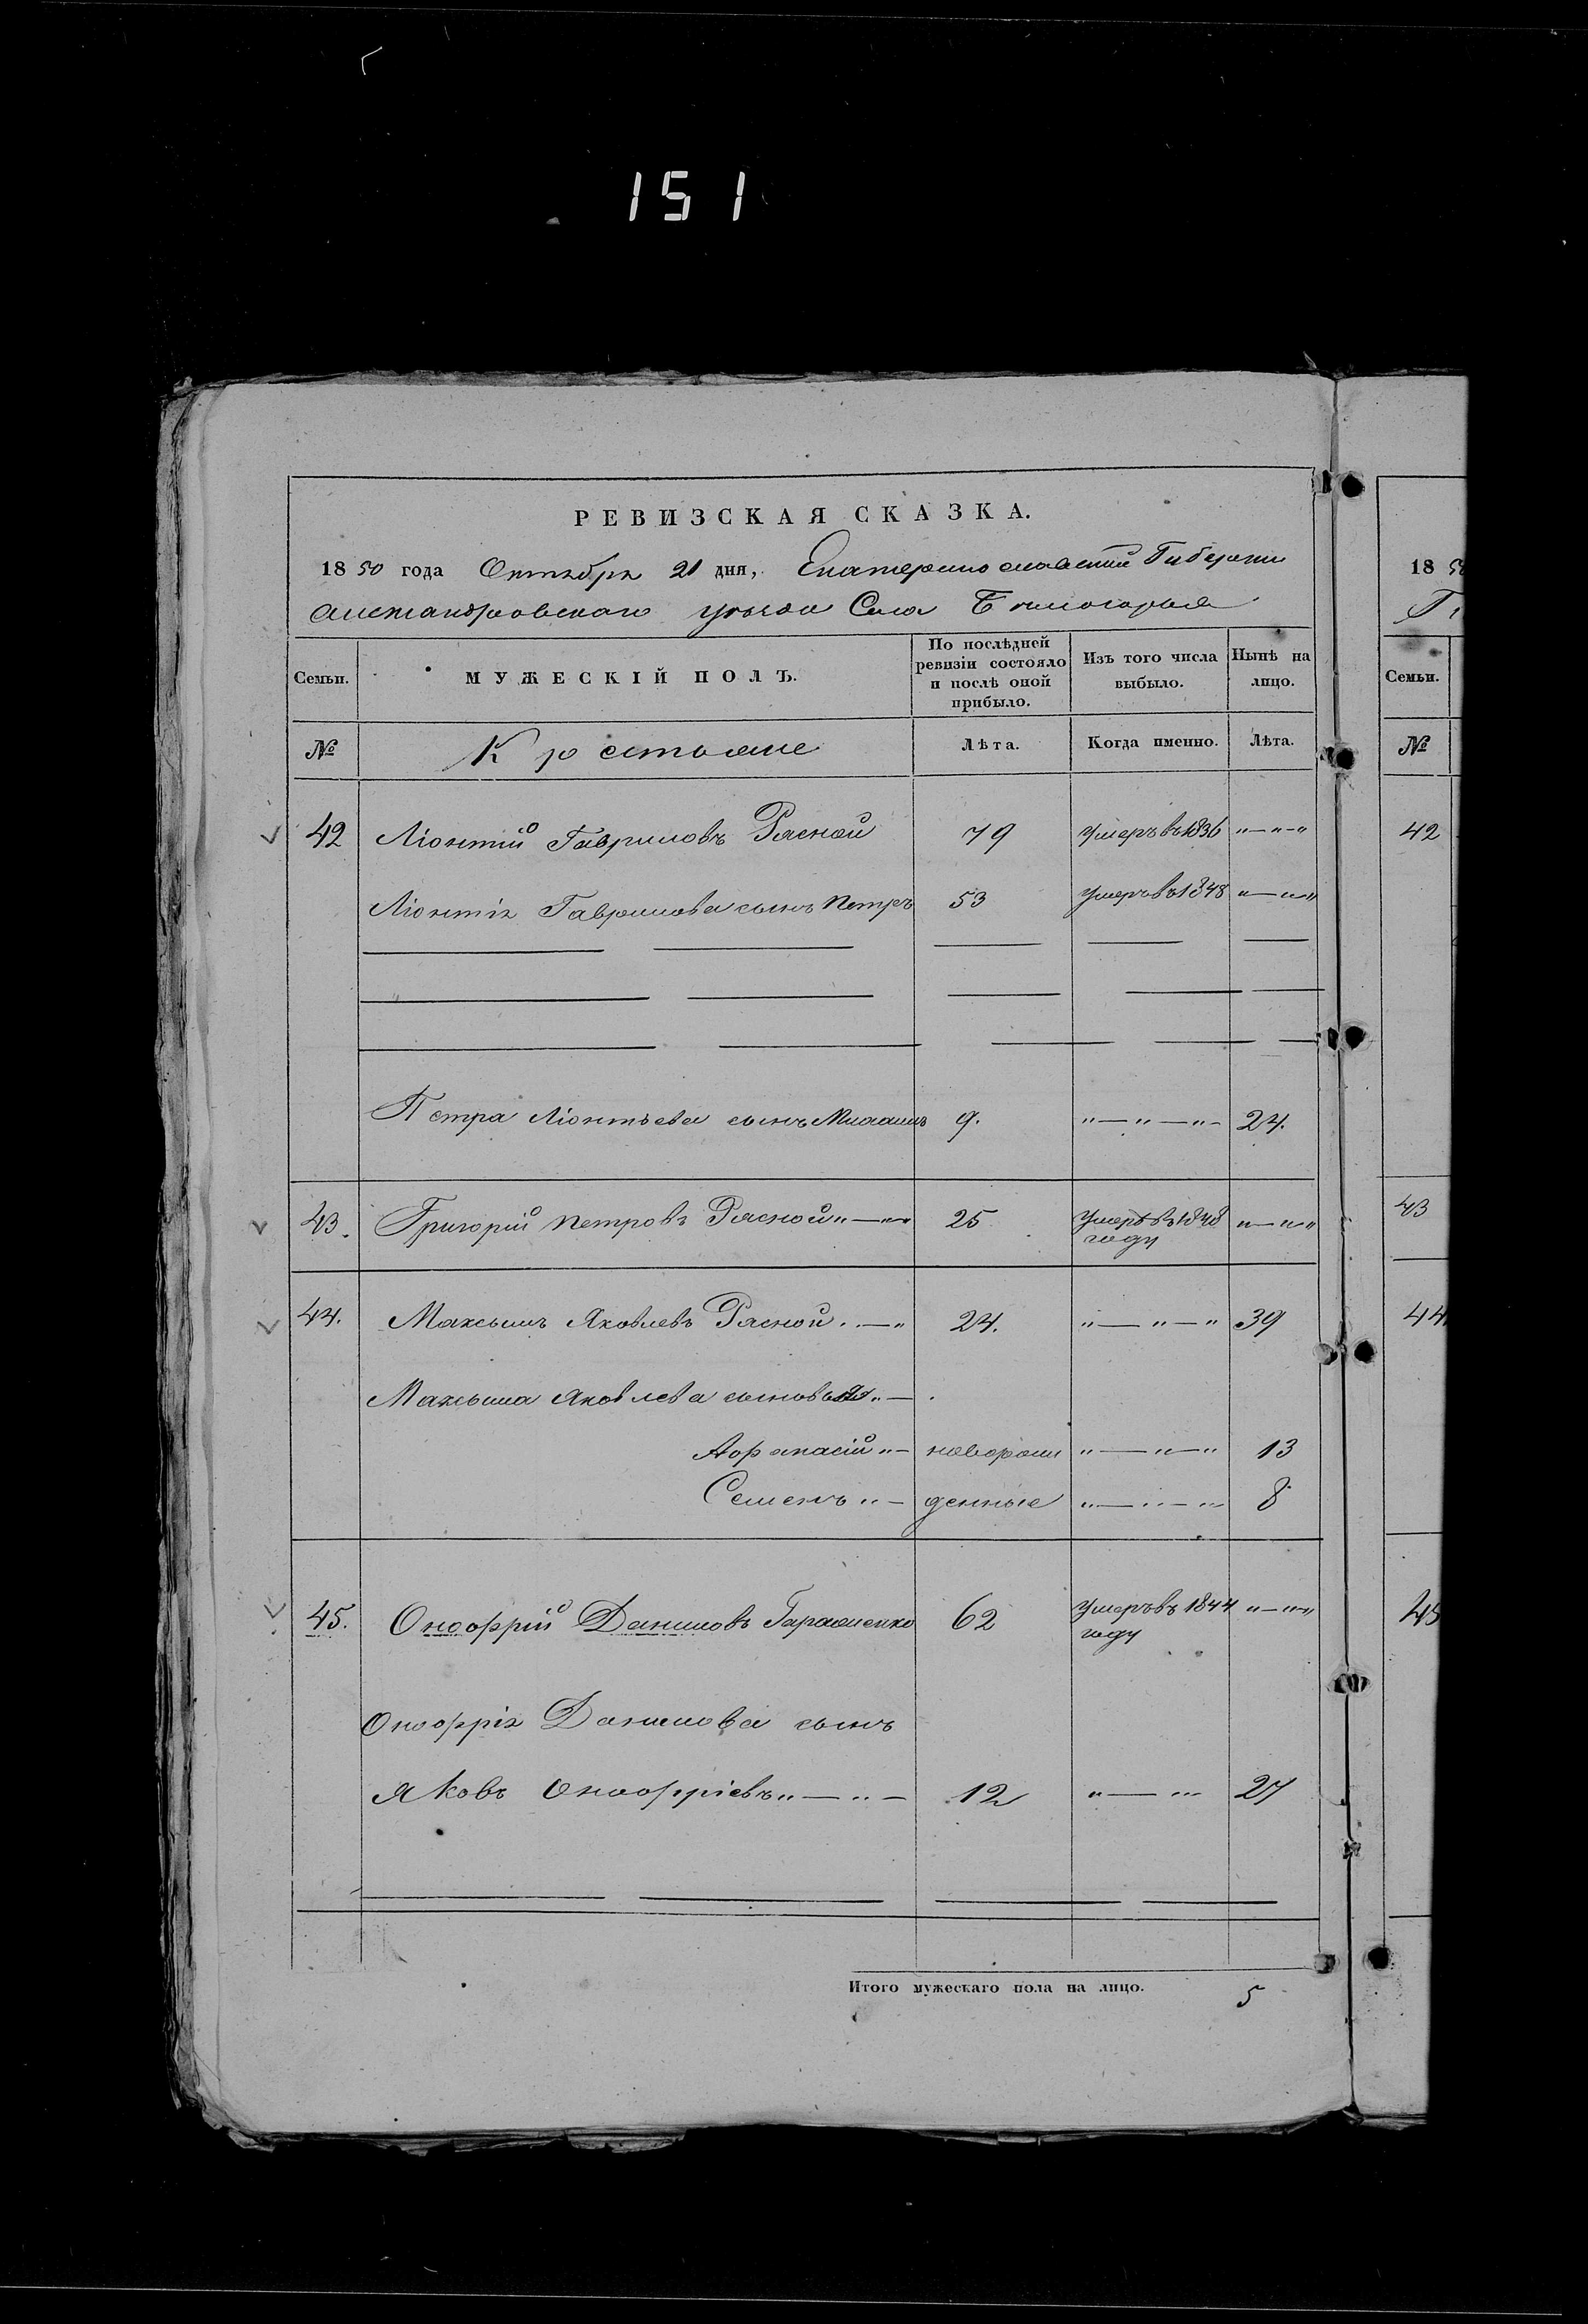 151
РЕВИЗСКАЯ СКАЗКА.
1850 года Октября 21 дня, Екатеринославской Губернии
Александровскаго уѣзда Села Бѣлогорья
Семьи. МУЖЕСКІЙ ПОЛЪ. По послѣдней ревизіи состояло и послѣ оной прибыло. Изъ того числа выбыло. Нынѣ на лицо.
№ Крестьяне Лѣта. Когда именно. Лѣта.
42 Ліонтій Гавриловъ Рясной 79 Умеръ въ 1836 „—„-„
Ліонтія Гаврилова сынъ Петръ 53 Умеръ въ 1848 „—„-„
Петра Ліонтьева сынъ 9. „—„—„- 24.
43. Григорій Петровъ Рясной „—„-„ 25 Умеръ въ 1848 году „—„-„
44. Максымъ Яковлевъ Рясной. „—„ 24. „—„—„ 39
Максыма Яковлева сыновья „—
Афанасій „— новорож „—„—„ 13
Семенъ „— денные „—„—„ 8
45. Онофрій Даниловъ Гараженко 62 Умеръ въ 1844 году „—„-„
Онофрія Данилова сынъ
Яковъ Онофріевъ „—„— 12 „—„„ 27
Итого мужескаго пола на лицо. 5
18 50
Семьи.
№
42
43
44
45